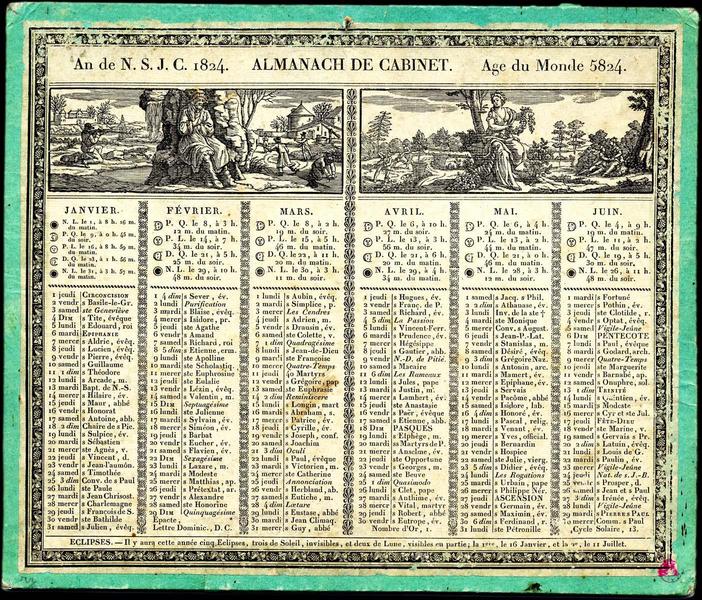 An de N. S. J. C. 1824. ALMANACH DE CABINET. Age du Monde 5824.
JANVIER.
N. L. le 1, à 8 h. 16 m.
du matin.
P. Q. le 9, à 0 h. 45 m.
du soir.
P. L. le 16, à 8 h. 59 m.
du matin.
D. Q. le 23, à 1 h. 56 m
du matin.
N. L. le 31, à 3 h. 57 m.
du matin.
1 jeudi CIRCONCISION
2 vendr s Basile-le-Gr.
3 samed ste Geneviève
4 DIM s Tite, évêque
5 lundi s Edouard, roi
6 mardi EPIPHANIE
7 mercr s Aldric, évêq.
8 jeudi s Lucien, évêq.
9 vendr s Pierre, évêq.
10 samed s Guillaume
11 1 dim s Théodore
12 lundi s Arcade, m.
13 mardi Bapt. de N.-S.
14 mercr s Hilaire, év.
15 jeudi s Maur, abbé
16 vendr s Honorat
17 samed s Antoine, abb.
18 2 dim s Chaire de s Pic.
19 lundi s Sulpice, év.
20 mardi s Sébastien
21 mercr ste Agnès, v.
22 jeudi s Vincent, d.
23 vendr s Jean-l'aumôn.
24 samed s Timothée
25 3 dim Conv. de s Paul
26 lundi ste Paule
27 mardi s Jean Chrisost.
28 mercr s Charlemagne
29 jeudi s François de S.
30 vendr ste Bathilde
31 samed s Julien, évêq.
FÉVRIER.
P. Q. le 8, à 3 h.
12 m. du matin
P. L. le 14, à 7 h.
34 m. du soir.
D. Q. le 21, à 5 h.
25 m. du soir.
N. L. le 29, à 10 h.
48 m. du soir.
1 4 dim s Sever, év.
2 lundi Purification
3 mardi s Blaise, évêq.
4 mercr s Isidore, pr.
5 jeudi ste Agathe
6 vendr s Amand
7 samed s Richard, roi
8 5 dim s Etienne, erm.
9 lundi ste Apolline
10 mardi ste Scholastiq.
11 mercr ste Euphrosine
12 jeudi ste Eulalie
13 vendr s Lézin, évêq.
14 samed s Valentin, m.
15 DIM Septuagésime
16 lundi ste Julienne
17 mardi s Sylvain, év.
18 mercr s Siméon, év.
19 jeudi s Barbat
20 vendr s Eucher, év.
21 samed s Flavien, év.
22 DIM Sexagésime
23 lundi s Lazare, m.
24 mardi s Modeste
25 mercr s Matthias, ap.
26 jeudi s Prétextat, ar.
27 vendr s Alexandre
28 samed ste Honorine
29 DIM Quinquagésime
Epacte,
Lettre Dominic., D. C.
MARS.
P. Q. le 8, à 2 h.
19 m. du soir.
P. L. le 15, à 5 h.
46 m. du matin.
D. Q. le 22, à 11 h.
20 m. du matin.
N. L. le 30, à 3 h.
11 m. du soir.
1 lundi s Aubin, évêq.
2 mardi s Simplice, p.
3 mercr Les Cendres
4 jeudi s Adrien, m.
5 vendr s Drausin, év.
6 samed ste Colette, v.
7 1 dim Quadragésime
8 lundi s Jean-de-Dieu
9 mardi ste Francoise
10 mercr Quatre-Temps
11 jeudi 40 Martyrs
12 vendr s Grégoire, pap
13 samed ste Euphrasie
14 2 dim Reminiscere
15 lundi s Longin, mart
16 mardi s Abraham, s.
17 mercr s Patrice, év.
18 jeudi s Cyrille, év.
19 vendr s Joseph, conf.
20 samed s Joachim
21 3 dim Oculi
22 lundi s Paul, évêque
23 mardi s Victorien, m.
24 mercr ste Catherine
25 jeudi Annonciation
26 vendr s Herbland, ab.
27 samed s Eutiche, m.
28 4 dim Lætare
29 lundi s Eustase, abbé
30 mardi s Jean Climaq.
31 mercr s Guy, abbé
AVRIL.
P. Q. le 6, à 10 h.
27 m. du soir.
P. L. le 13, à 3 h.
56 m. du soir.
D. Q. le 21, à 6 h.
20 m. du matin.
N. L. le 29, à 4 h.
34 m. du matin.
1 jeudi s Hugues, év.
2 vendr s Franç. de P.
3 samed s Richard, év.
4 5 dim La Passion
5 lundi s Vincent-Ferr.
6 mardi s Prudence, év.
7 mercr s Hégésippe
8 jeudi s Gautier, abb.
9 vendr N.-D. de Pitié.
10 samed s Macaire, év.
11 6 dim Les Rameaux
12 lundi s Jules, pape
13 mardi s Justin, m.
14 mercr s Lambert, év.
15 jeudi ste Anastasie
16 vendr s Paër, évêque
17 samed s Etienne, abb.
18 DIM PASQUES
19 lundi s Elphège, m.
20 mardi ss Martyrs de P.
21 mercr s Anselme, év.
22 jeudi ste Opportune
23 vendr s Georges, m.
24 samed ste Beuve
25 1 dim Quasimodo
26 lundi s Clet, pape
27 mardi s Anthime, év.
28 mercr s Vital, martyr
29 jeudi s Robert, abbé
30 vendr s Eutrope, év.
Nombre d'Or, 1.
MAI.
P. Q. le 6, à 4 h.
25 m. du matin.
P. L. le 13, à 2 h.
44 m. du matin.
D. Q. le 21, à 0 h.
46 m. du matin.
N. L. le 28, à 3 h.
12 m. du soir.
1 samed s Jacq. s Phil.
2 2 dim s Athanase, év.
3 lundi Inv. de la ste ┼
4 mardi ste Monique
5 mercr Conv. s August.
6 jeudi s Jean-P.-Lat.
7 vendr s Stanislas, m.
8 samed s Désiré, évêq.
9 3 dim s GrégoireNaz.
10 lundi s Antonin, arc
11 mardi s Mamert, év.
12 mercr s Epiphane, év.
13 jeudi s Servais
14 vendr s Pacôme, abbé
15 samed s Isidore, lab.
16 4 dim s Honoré, év.
17 lundi s Pascal, relig.
18 mardi s Venant, mart.
19 mercr s Yves, official.
20 jeudi s Bernardin
21 vendr s Hospice
22 samed ste Julie, vierg.
23 5 dim s Didier, évêq.
24 lundi Les Rogations
25 mardi s Urbain, pape
26 mercr s Philippe Nér.
27 jeudi ASCENSION
28 vendr s Germain, év.
29 samed s Maximin, év
30 6 dim s Ferdinand, r.
31 lundi ste Pétronille
JUIN.
P. Q. le 4, à 9 h.
19 m. du matin.
P. L. le 11, à 2 h.
47 m. du soir.
D. Q. le 19, à 5 h.
30 m. du soir.
N. L. le 26, à 11 h.
48 m. du soir.
1 mardi s Fortuné
2 mercr s Pothin, év.
3 jeudi ste Clotilde, r.
4 vendr s Optat, évêq.
5 samed Vigile-Jeûne
6 DIM PENTECOTE
7 lundi s Paul, évêque
8 mardi s Godard, arch.
9 mercr Quatre-Temps
10 jeudi ste Marguerite
11 vendr s Barnabé, ap.
12 samed s Onuphre, sol.
13 1 dim TRINITÉ
14 lundi s Quintien, év.
15 mardi s Modeste
16 mercr s Cyr et ste Jul.
17 jeudi FÊTE-DIEU
18 vendr ste Marine, v.
19 samed s Gervais s Pr.
20 2 dim s Latuin, évêq.
21 lundi s Louis de G.
22 mardi s Paulin, év.
23 mercr Vigile-Jeûne
24 jeudi Nat. de s. J.-B.
25 vendr s. Prosper, d.
26 samed s Jean et s Paul
27 3 dim s Irénée, évêq.
28 lundi Vigile-Jeûne
29 mardi s PIERRE s PAUL
30 mercr Comm. s Paul
Cycle Solaire, 13.
ECLIPSES. — Il y aura cette année cinq Eclipses, trois de Soleil, invisibles, et deux de Lune, visibles en partie; la 1ere, le 16 Janvier, et la 2e, le 11 Juillet.